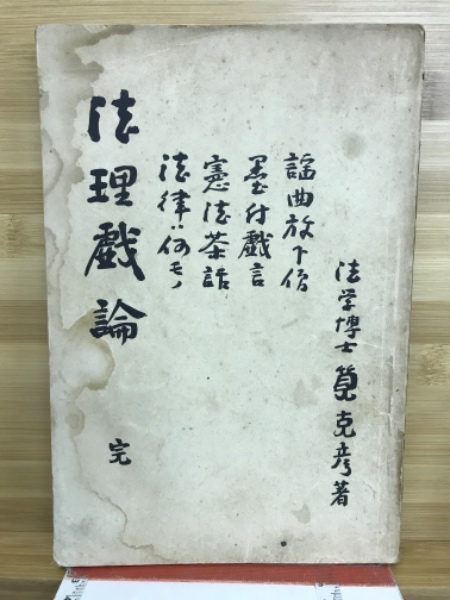 法学博士 筧克彦著
謡曲放下僧
戯言
憲法茶話
法律ハ何モノ
法理戯論 完